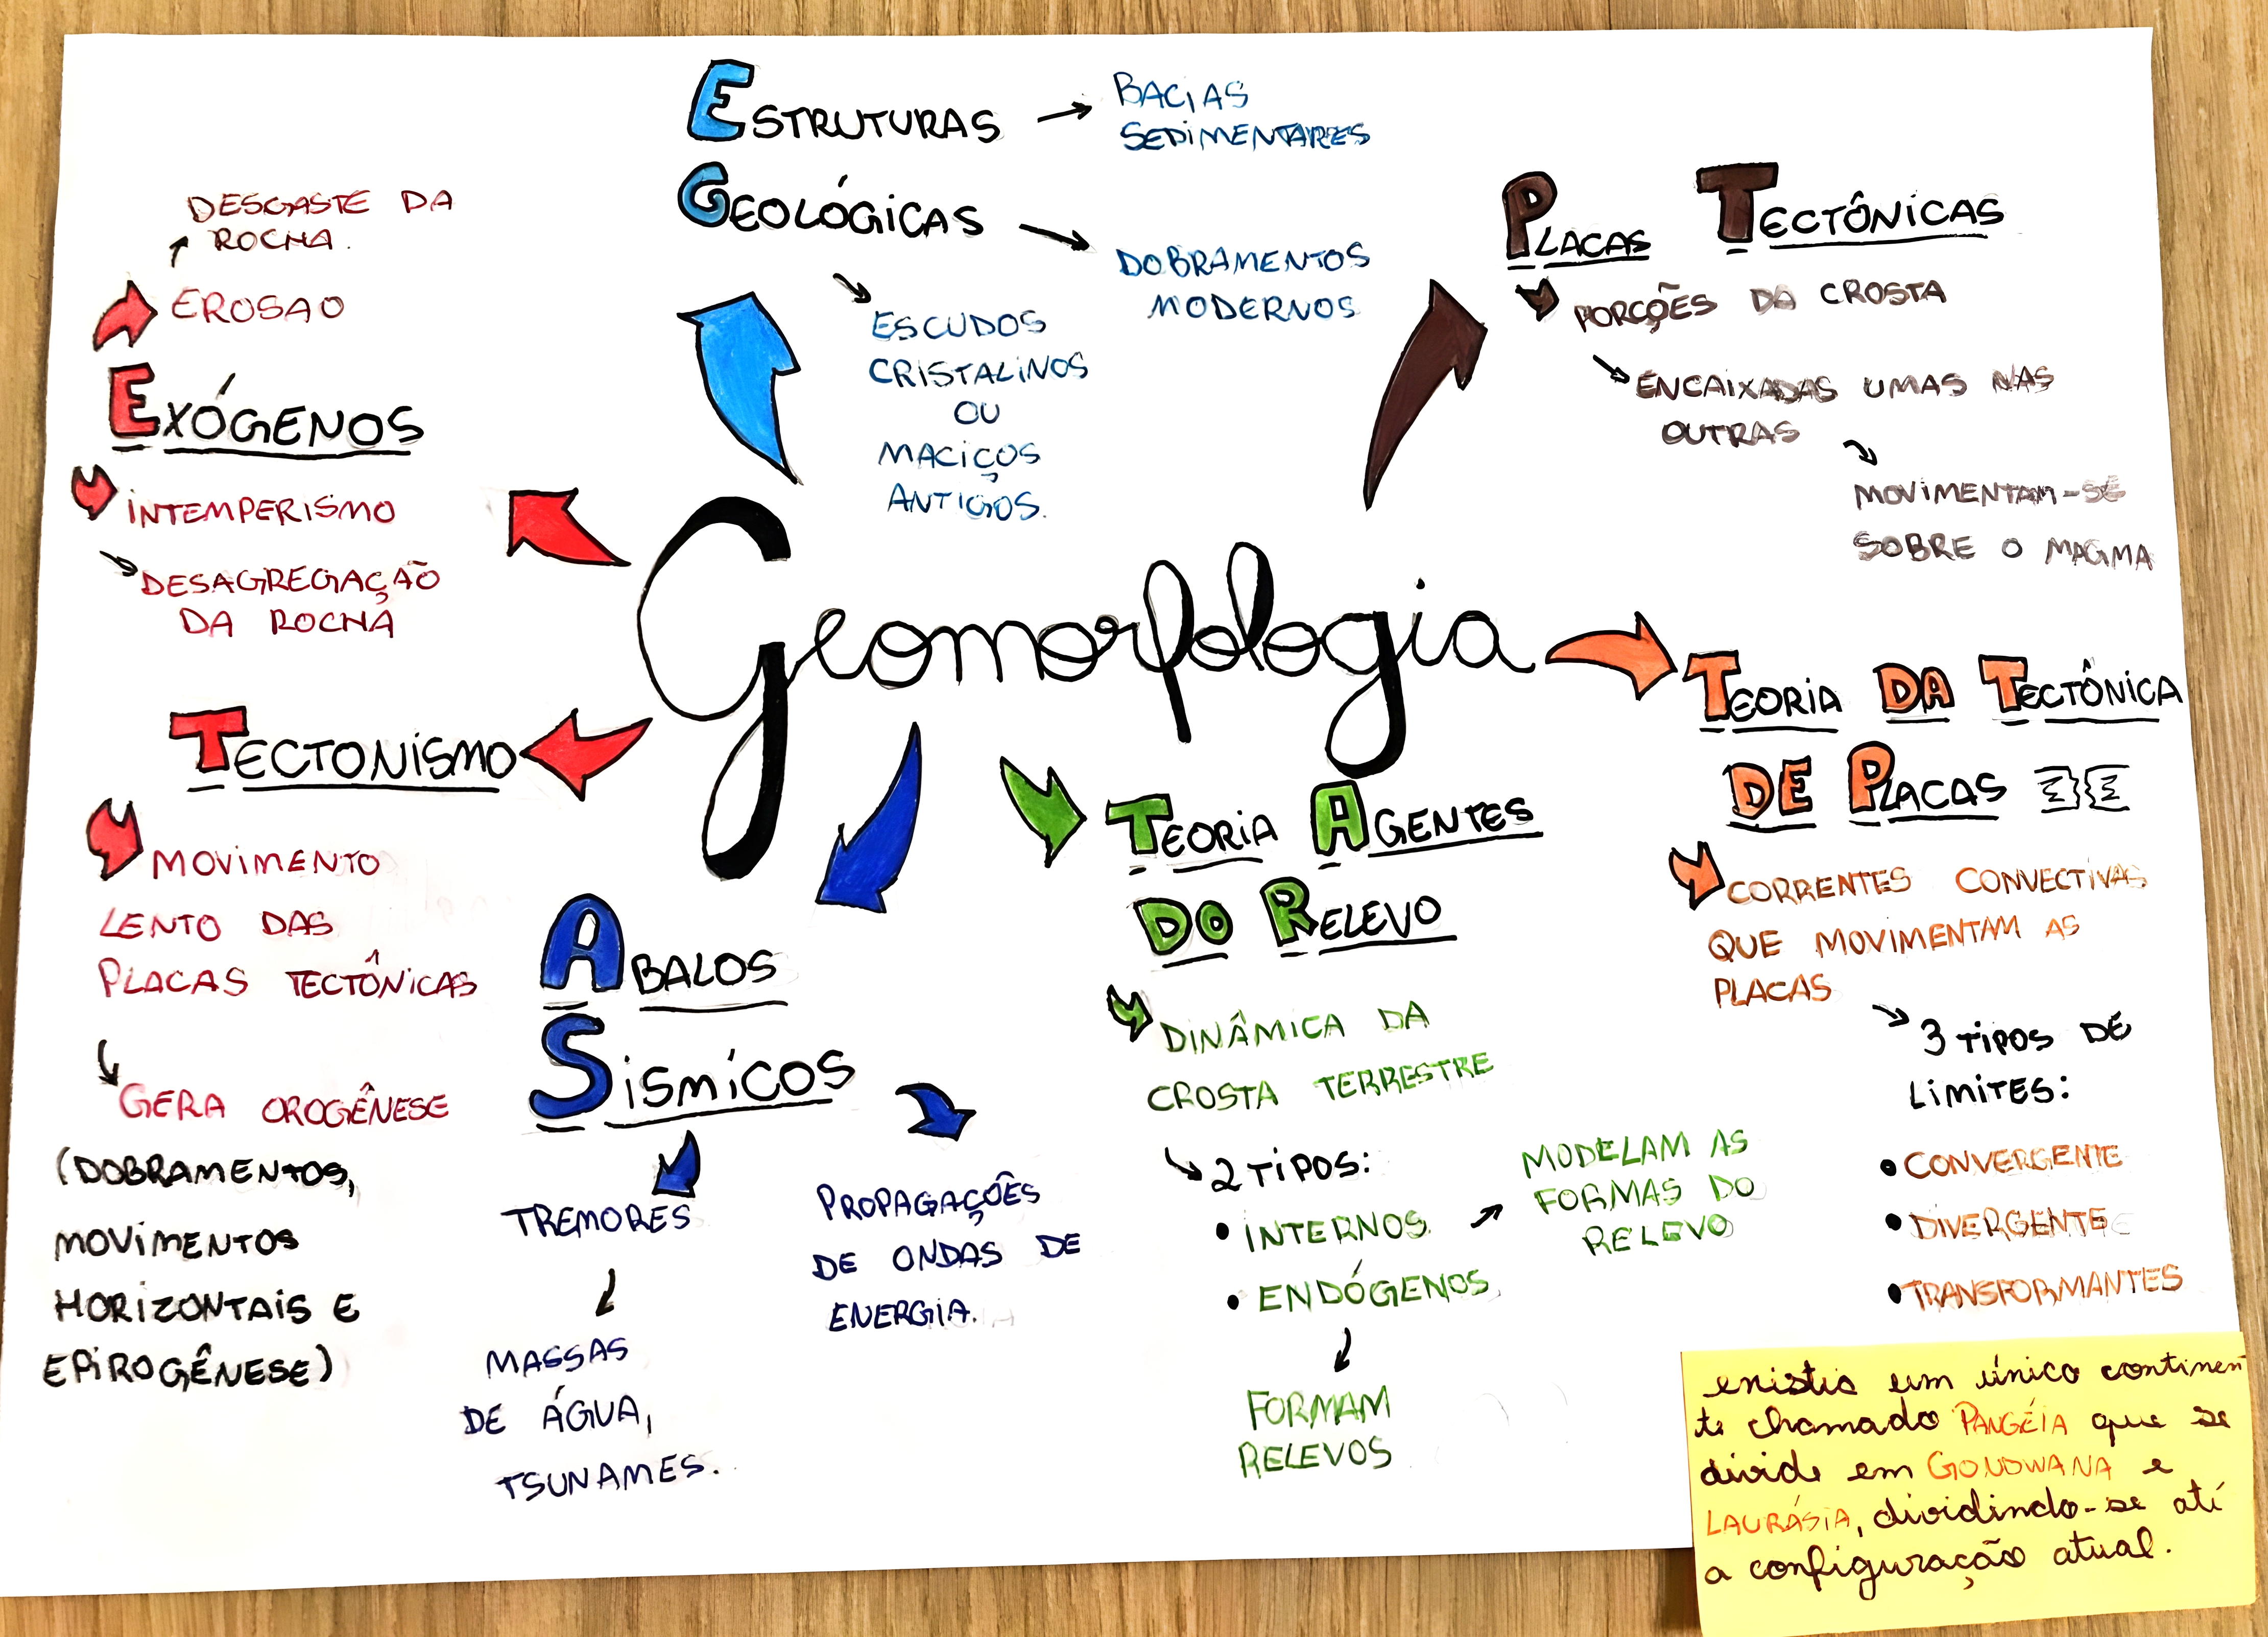 ESTRUTURAS
GEOLÓGICAS
BACIAS
SEDIMENTARES
DOBRAMENTOS
MODERNOS
ESCUDOS
CRISTALINOS
OU
MACIÇOS
ANTIGOS.
PLACAS TECTÔNICAS
PORÇÕES DA CROSTA
ENCAIXADAS UMAS NAS
OUTRAS
MOVIMENTAM-SE
SOBRE O MAGMA
DESGASTE DA
ROCHA.
EROSAO
EXÓGENOS
INTEMPERISMO
DESAGREGAÇÃO
DA ROCHA
Geomorfologia
TECTONISMO
MOVIMENTO
LENTO DAS
PLACAS TECTÔNICAS
GERA OROGÊNESE
(DOBRAMENTOS,
MOVIMENTOS
HORIZONTAIS E
EPIROGÊNESE)
ABALOS
SÍSMICOS
TREMORES
MASSAS
DE ÁGUA,
TSUNAMES.
PROPAGAÇÕES
DE ONDAS DE
ENERGIA.
TEORIA AGENTES
DO RELEVO
DINÂMICA DA
CROSTA TERRESTRE
2 TIPOS:
• INTERNOS.
• ENDÓGENOS
MODELAM AS
FORMAS DO
RELEVO
FORMAM
RELEVOS
TEORIA DA TECTÔNICA
DE PLACAS
CORRENTES CONVECTIVAS
QUE MOVIMENTAM AS
PLACAS
3 TIPOS DE
LIMITES:
• CONVERGENTE
• DIVERGENTE
• TRANSFORMANTES
existia um único continen
te chamado PANGÉIA que se
divide em GONDWANA e
LAURÁSIA, dividindo-se até
a configuração atual.